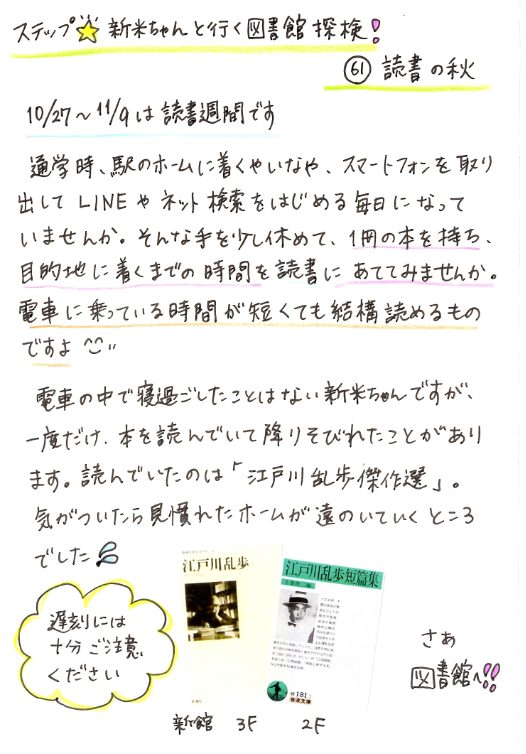 ステップ☆新米ちゃんと行く図書館探検!
61 読書の秋
10/27〜11/9は読書週間です
通学時、駅のホームに着くやいなや、スマートフォンを取り
出してLINEやネット検索をはじめる毎日になって
いませんか。そんな手を少し休めて、1冊の本を持ち、
目的地に着くまでの時間を読書にあててみませんか。
電車に乗っている時間が短くても結構読めるもの
ですよ^^
電車の中で寝過ごしたことはない新米ちゃんですが、
一度だけ、本を読んでいて降りそびれたことがあり
ます。読んでいたのは「江戸川乱歩傑作選」。
気がついたら見慣れたホームが遠のいていくところ
でした
江戸川乱歩
江戸川乱歩短篇集
岩波文庫
遅刻には
十分ご注意
ください
さあ
図書館へ!!
新館 3F 2F